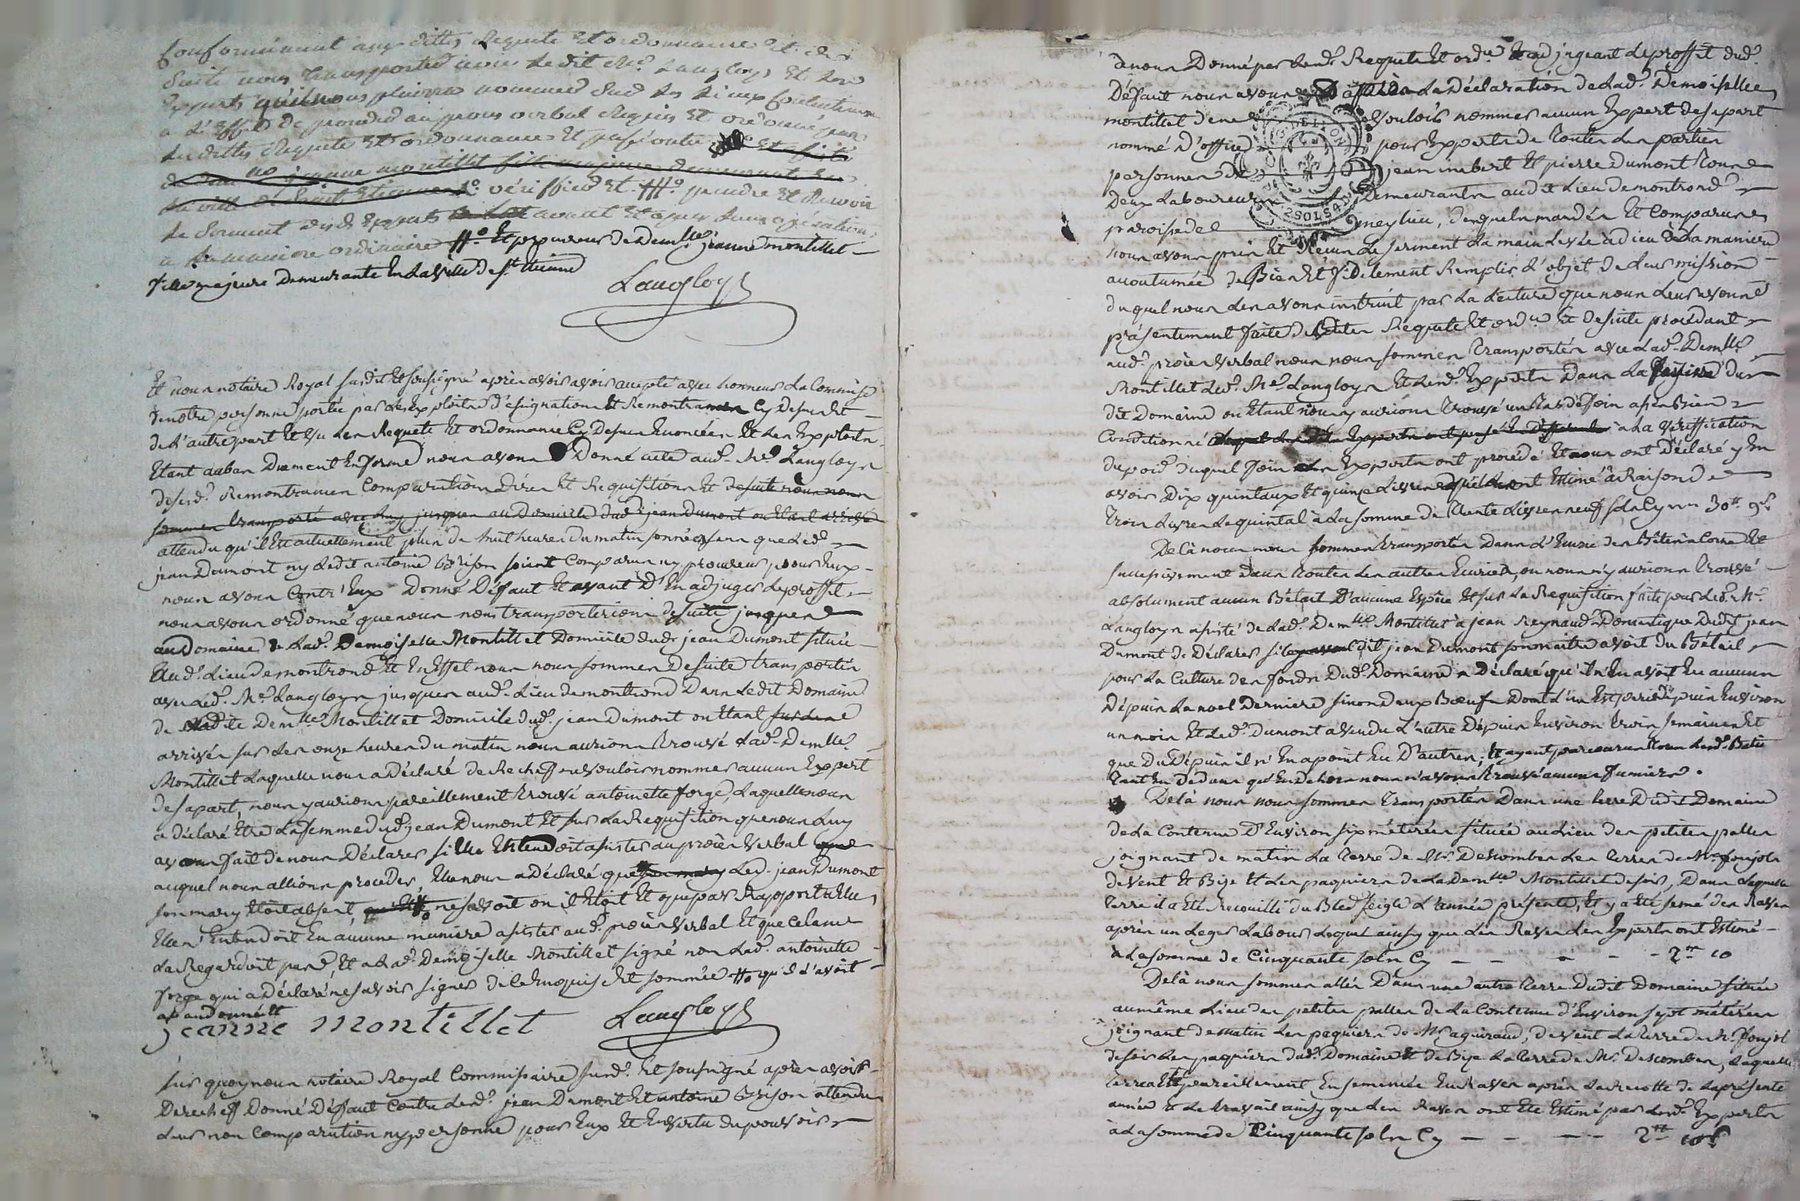 Conformément aux dittes Requete et ordonnance et de
suite nous transporter avec ledit Me. Langloys et les
Experts qu'il nous plaira nommer sur les lieux contentieux
a l'effet de proceder au procès verbal requis et ordonné par
lesdittes Requete et ordonnance et passé outre
de Dlle. jeanne montillet fille majeure demeurante en
la ville de Saint Etienne verifficer et prendre et Recevoir
le serment desd. Experts avant et apres leurs operations
a la maniere ordinaire #. Et procureur de Demlle. jeanne montillet
fille majeure Demeurante En la ville de St. Etienne
Langloys
Et nous notaire Royal susdit et soussigné après avoir accepté avec honneur la Commise
de notre personne portée par les Exploits d'assignation et Remontrance Cy dessus et
de l'autre part et Vu les Requete et ordonnance Cy Dessus Enoncées et les Exploits
Etant au bas Duement En forme nous avons Donné acte aud. Me. Langloys
de ses d. Remontrances Comparution Dires et Requisitions et de suite nous nous
sommes transporté avec luy jusques au Domicile dud. jean Dumont ou Etant arrivés
attendu qu'il Est actuellement plus de huit heures du matin sonnées sans que led.
jean Dumont ny ledit antoine Grison soient Comparus ny procureur pour Eux
nous avons Contr'Eux Donné Défaut et avant D'En adjuger le proffit
nous avons ordonné que nous nous transporterions de suite jusques
au Domaine de lad. Demoiselle Montillet Domicile dudt. jean Dumont située
aud. Lieu de montrond Et En Effet nous nous sommes de suite transportés
avec led. Me. Langloys jusques aud. Lieu de montrond Dans ledit Domaine
de ladite Demlle. Montillet Domicile dud. jean Dumont ou Etant
arrivés sur les onze heures du matin nous aurions trouvé lad. Demlle.
Montillet laquelle nous a Déclaré de Rechef ne vouloir nommer aucun Expert
de sa part, nous y aurions pareillement trouvé antoinette forge, laquelle nous
a déclaré Etre la femme dud. jean Dumont et sur la Requisition que nous luy
avons fait de nous Déclarer si Elle Entendoit assister au procès verbal
auquel nous allions proceder, Elle nous a Déclaré que led. jean Dumont
son mary Etoit absent, ne savoit ou il Etoit et que par Rapport a Elle,
Elle n'Entendoit En aucune maniere assister aud. procès verbal Et que cela ne
la Regardoit pas, Et a lad. Demoiselle Montillet signé non lad. antoinette
forge qui a Déclaré ne savoir signer de ce Enquis et sommée # qu'il l'avoit
abandonnée #
jeanne montillet Langloys
Sur quoy nous notaire Royal Commissaire susd. Et soussigné après avoir
Derechef Donné Défaut Contre lesd. jean Dumont Et antoine Grison attendu
leur non Comparution ny personne pour Eux Et En vertu du pouvoir
a nous Donné par lesd. Requete Et ordce. Et adjugeant le proffit dud.
Défaut nous avons après la Déclaration de lad. Demoiselle
montillet de ne Vouloir nommer aucun Expert de sa part
nommé d'office pour Experts de toutes les parties
personnes de jean imbert Et pierre dumont tous
Deux Laboureurs Demeurants audit Lieu de montrond
paroisse de meylieu, desquels mandés Et Comparus
nous avons pris Et Recu le serment la main levée à Dieu à la maniere
accoutumée de Bien Et fidelement Remplir l'objet de leur mission
duquel nous les avons instruit par la Lecture que nous leur avons
présentement faite desdites Requete Et ordce. Et De suite procédant
aud. procès verbal nous nous sommes transportés avec lad. Demlle.
Montillet led. Me. Langloys Et lesd. Experts Dans la du
dit Domaine ou Etant nous y aurions trouvé un tas de foin assez Bien
Conditionné a la vérification
du poid duquel foin les Experts ont procédé Et nous ont Déclaré y En
avoir Dix quintaux Et quinze Livres qu'ils ont Estimé à Raison de
trois Livres le quintal à la somme de trente Livres neuf sols Cy 30tt 9s
Delà nous nous sommes transportés Dans l'Ecurie des Bêtes à Corne Et
successivement Dans toutes les autres Ecuries, ou nous n'y aurions trouvé
absolument aucun Bétail D'aucune Espèce Et sur la Requisition faite par led. Me.
Langloys assisté de lad. Demlle. Montillet a jean Reynaud Domestique Dudit jean
Dumont de Déclarer si led. jean Dumont son maitre avoit du Bétail
pour la Culture des fonds dud. Domaine a Déclaré qu'il n'En avoit Eu aucun
Depuis la noel Derniere sinon deux Bœufs Dont l'un Est peri depuis Environ
un mois Et led. Dumont a vendu l'autre Depuis Environ trois semaines Et
que du Depuis il n'En a point Eu D'autres; Et ayant parcouru tous lesd. Bâti
tant En Dedans qu'En Dehors nous n'avons trouvé aucuns fumiers.
Delà nous nous sommes transportés Dans une terre Dudit Domaine
de la Contenue D'Environ six métérées située au Lieu des petites palles
joignant de matin la terre de Mr. Descombes les terres de Mr. Poujol
de Vent Et Bise Et les paquiers de la Demlle. Montillet de soir, Dans laquelle
terre il a Eté Recueilli du Bled seigle l'année présente, Et y a Eté semé des Raves
après un Leger labour lequel ainsy que les Raves les Experts ont Estimé
à la somme de Cinquante sols Cy - - - - - 2tt 10
Delà nous sommes allés Dans une autre terre Dudit Domaine située
au même Lieu des petites palles de la Contenue d'Environ sept métérées
joignant de matin les paquiers de Mr. aguiraud, de Vent la terre de Mr. Poujol
de soir les paquiers dud. Domaine Et de Bise la terre de Mr. Descombes, laquelle
terre a Eté pareillement Ensemencée En Raves après la Recolte de la présente
année Et le travail ainsy que les Raves ont Eté Estimé par lesd. Experts
à la somme de Cinquante sols Cy - - - - 2tt 10s